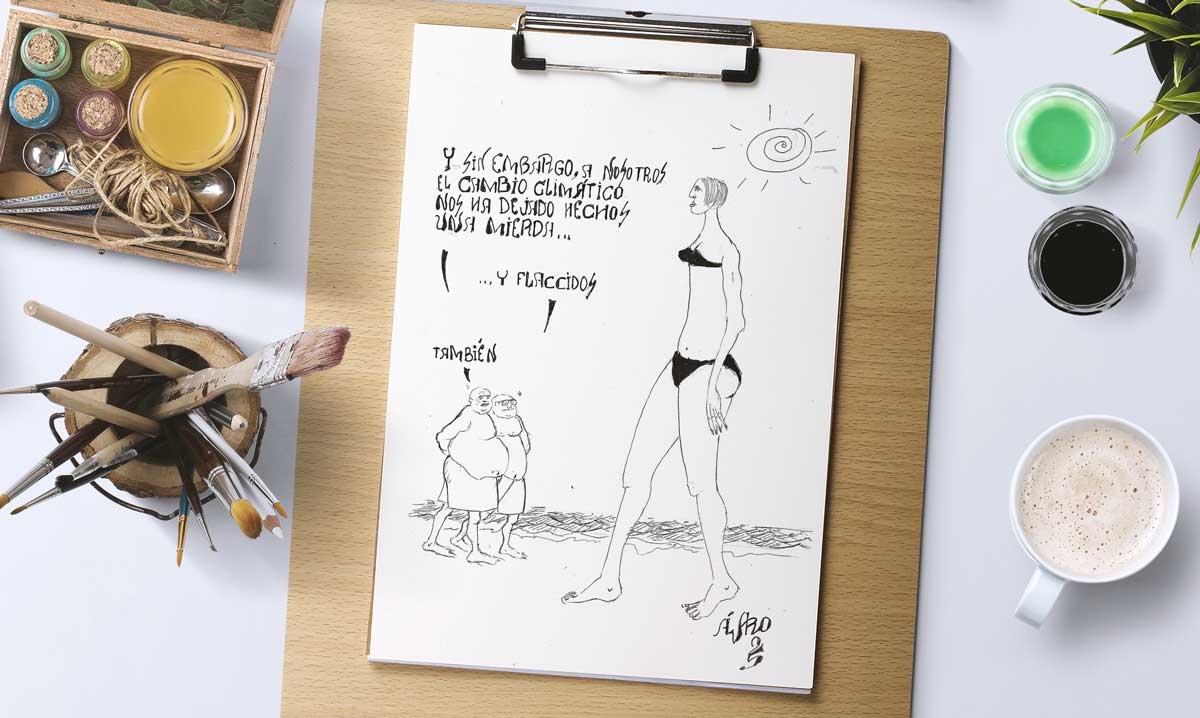 Y SIN EMBARGO, A NOSOTROS
EL CAMBIO CLIMÁTICO
NOS HA DEJADO HECHOS
UNA MIERDA...
...Y FLACCIDOS
TAMBIÉN